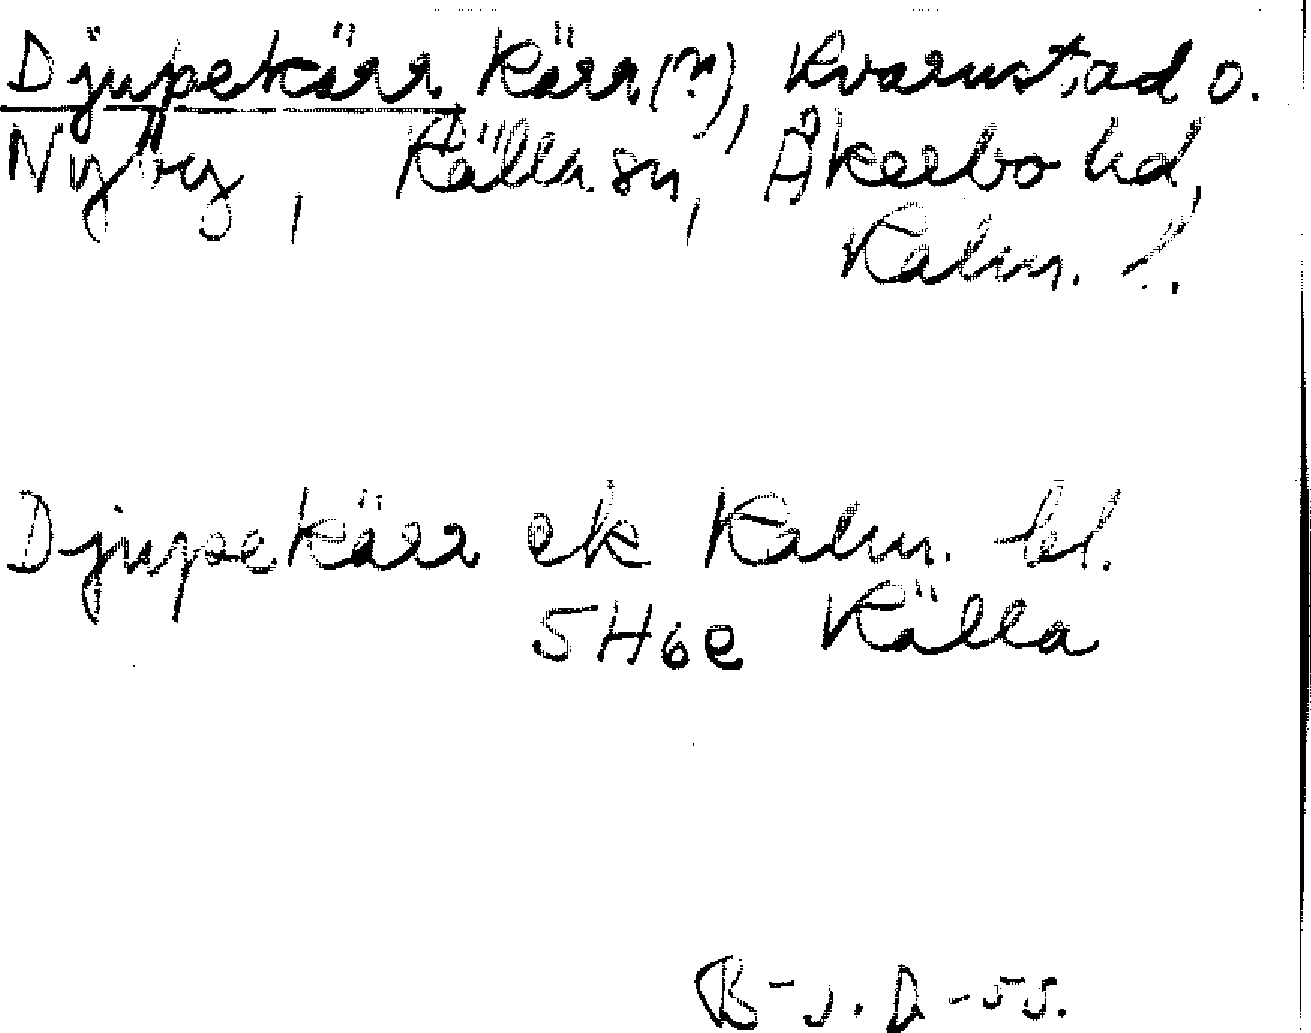 Djupekärr Kärr(?), Kvarnstad o.
Nyby, Källa sn, Åkerbo hd,
Kalm. l.
Djupekärr ek Kalm. bl.
5H6e Källa